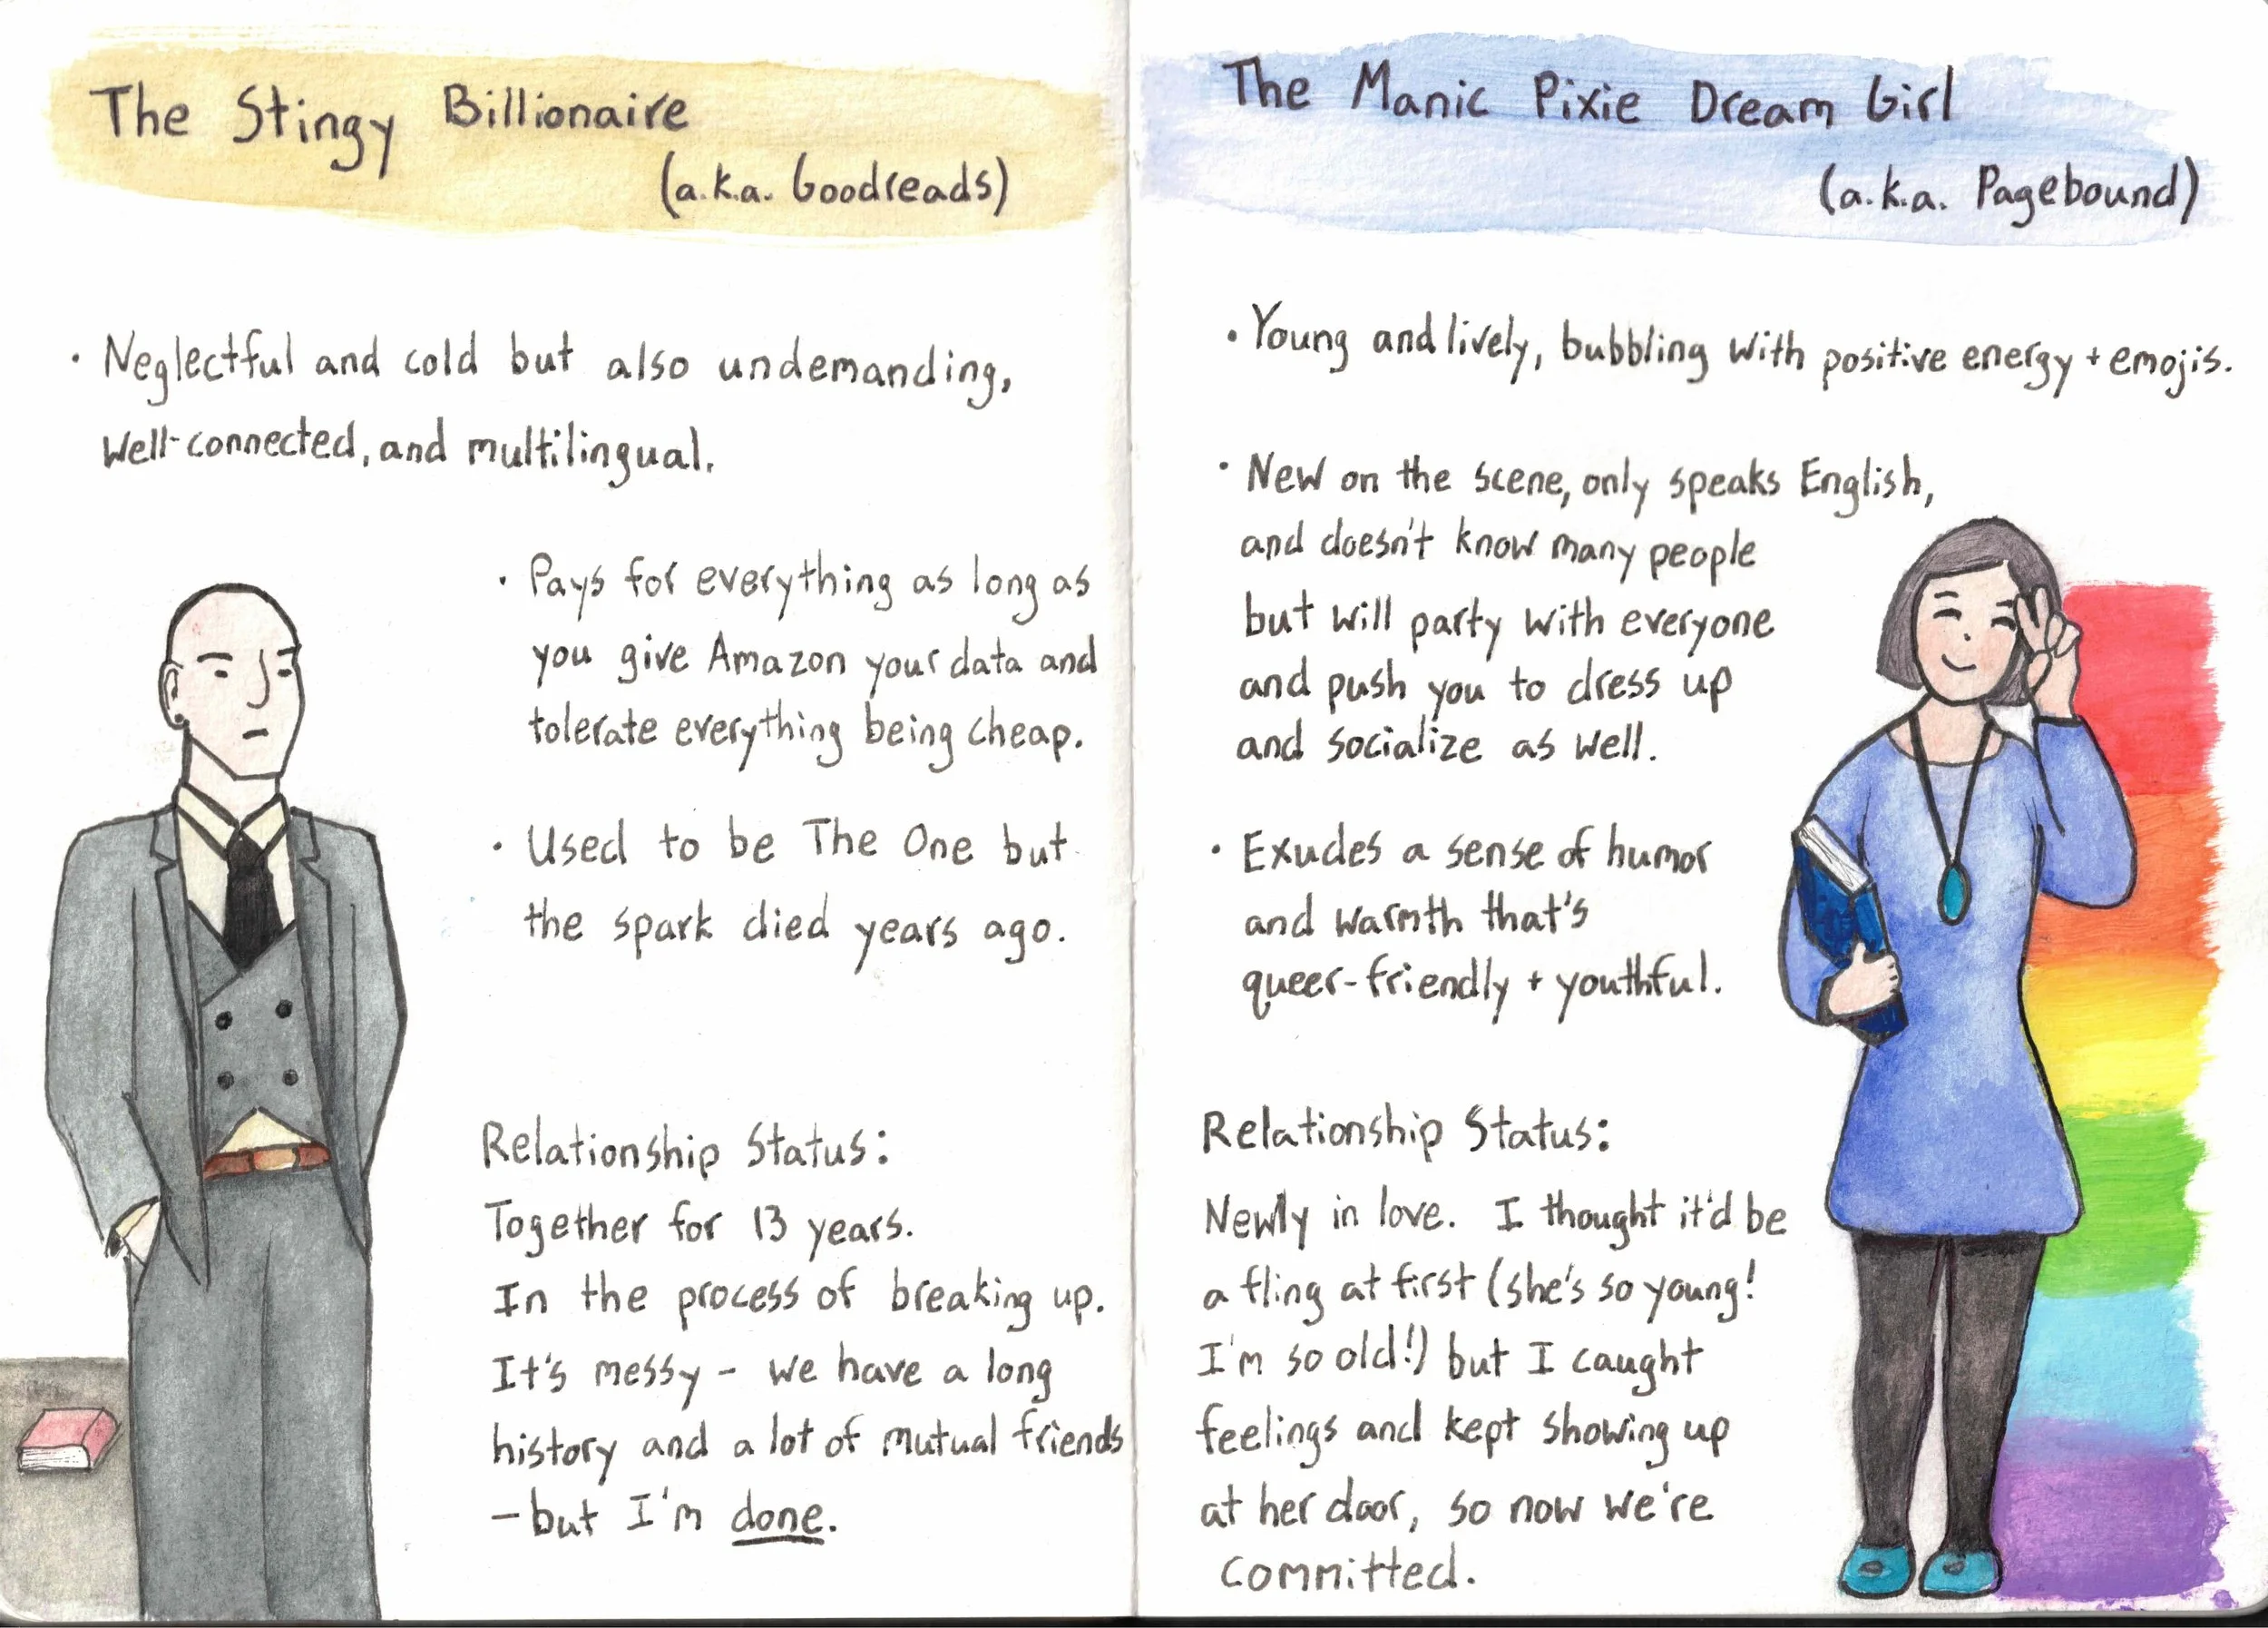 The Stingy Billionaire
(a.k.a. Goodreads)
· Neglectful and cold but also undemanding,
well-connected, and multilingual.
· Pays for everything as long as
you give Amazon your data and
tolerate everything being cheap.
· Used to be The One but
the spark died years ago.
Relationship Status:
Together for 13 years.
In the process of breaking up.
It's messy - we have a long
history and a lot of mutual friends
- but I'm done.
The Manic Pixie Dream Girl
(a.k.a. Pagebound)
· Young and lively, bubbling with positive energy + emojis.
· New on the scene, only speaks English,
and doesn't know many people
but will party with everyone
and push you to dress up
and socialize as well.
· Exudes a sense of humor
and warmth that's
queer-friendly + youthful.
Relationship Status:
Newly in love. I thought it'd be
a fling at first (she's so young!
I'm so old!) but I caught
feelings and kept showing up
at her door, so now we're
committed.